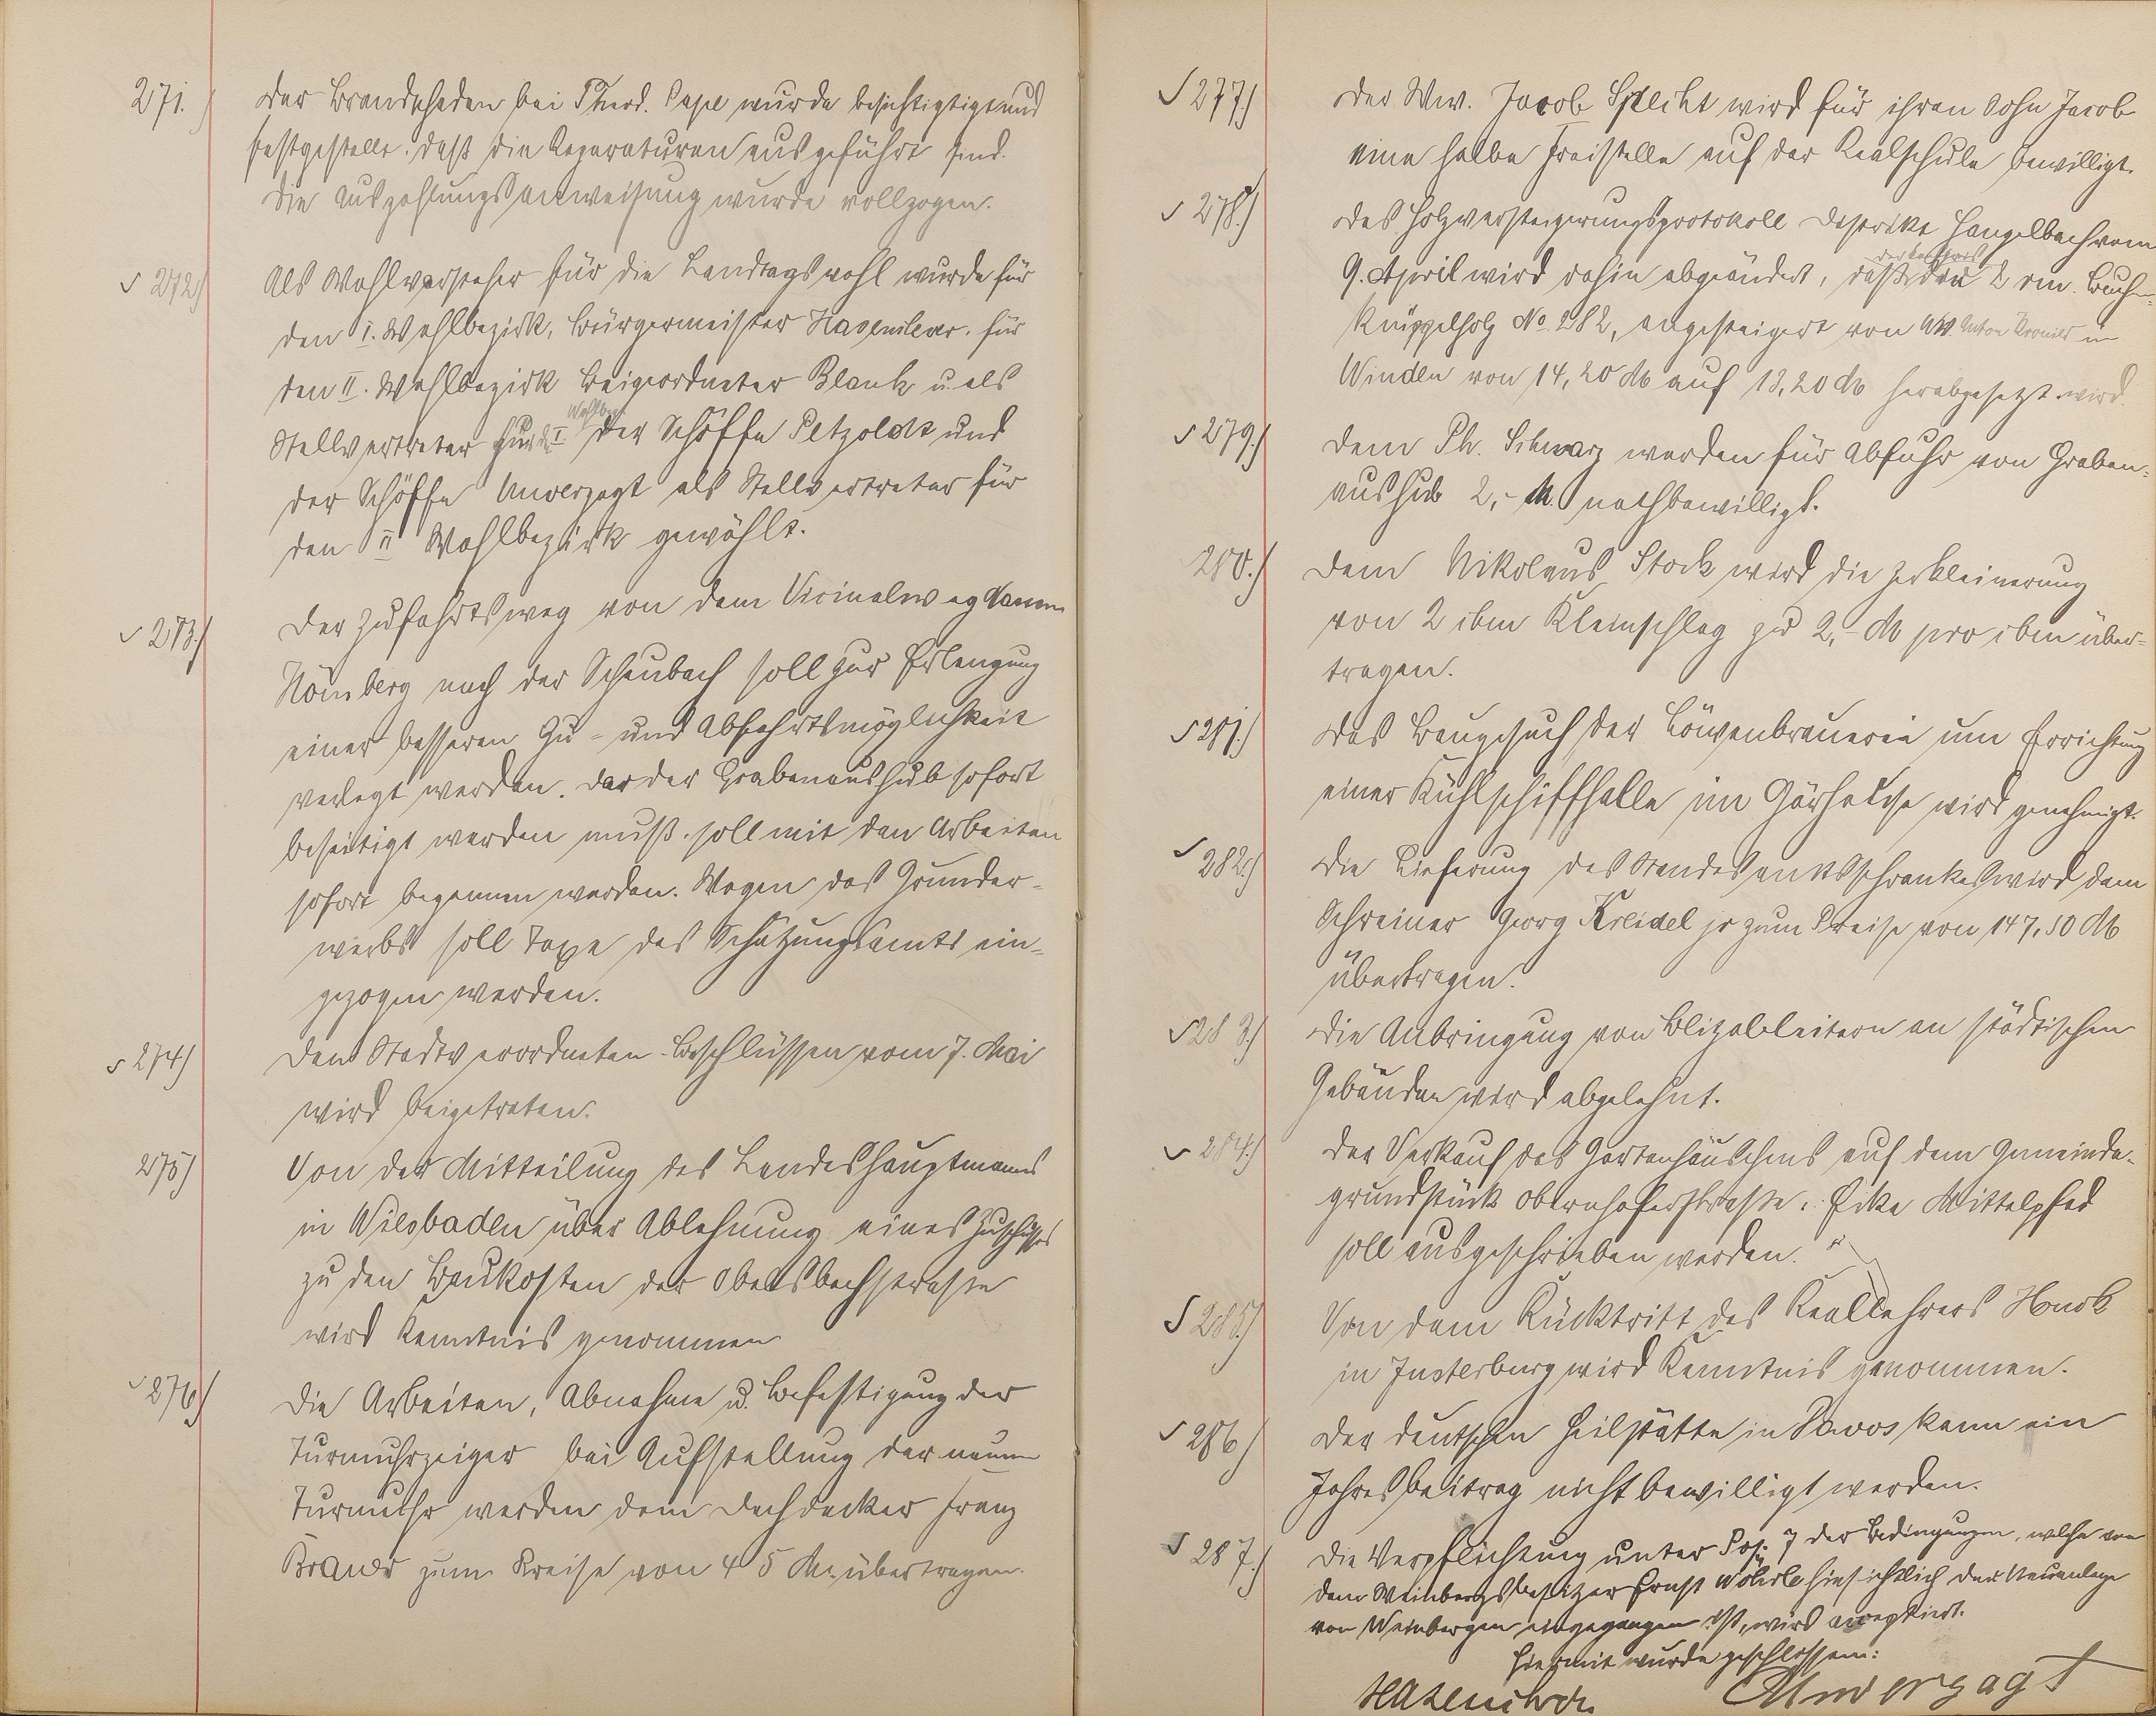 271.) Der Brandschaden bei Theod. Pape wurde besichtigtigt und
festgestellt, daß die Reparaturen ausgeführt sind.
Die Auszahlungsanweisung wurde vollzogen.
272.) Als Wahlvorsteher für die Landtagswahl wurde für
den I. Wahlbezirk, Bürgermeister Hasenclever, für
den II. Wahlbezirk Beigeordneter Blank u. als
Stellvertreter für d. I. Wahlbez. der Schöffe Petzoldt und
der Schöffe Unverzagt als Stellvertreter für
den II Wahlbezirk gewählt.
273.) Der Zufahrtsweg von dem Vicinalweg
Hömberg nach der Scheubach soll zur Erlangung
einer besseren Zu- und Abfahrtsmöglichkeit
verlegt werden. Da der Grabenaushub sofort
beseitigt werden muß, soll mit den Arbeiten
sofort begonnen werden. Wegen des Grunder-
werbs soll Taxe des Schätzungsamts ein-
gezogen werden.
274) Den Stadtverordneten-Beschlüssen vom 7. Mai
wird beigetreten.
275) Von der Mitteilung des Landeshauptmanns
in Wiesbaden über Ablehnung eines Zuschusses
zu den Baukosten der Oberbachstrasse
wird Kenntnis genommen
276) Die Arbeiten, Abnahme u. Befestigung der
Turmuhrzeiger bei Aufstellung der neuen
Turmuhr werden dem Dachdecker Franz
Brauer zum Preise von 45 M. übertragen.
277.) Der Ww. Jacob Specht wird für ihren Sohn Jacob
eine halbe Freistelle auf der Realschule bewilligt.
278.) Das Holzversteigerungsprotokoll Distrikt Hangelbach vom
9. April wird dahin abgeändert, daß der Kaufpreis der 2 rm. Buchen-
Knüppelholz No. 282, angesteigert von Ww. Anton Kronier in
Winden von 14,20 M auf 13,20 M herabgesetzt wird.
279.) Dem Ph. Schwarz werden für Abfuhr von Graben-
aushub 2,- M. nachbewilligt.
280.) Dem Nikolaus Stock wird die Zerkleinerung
von 2 cbm Kleinschlag zu 2,- M pro cbm über-
tragen.
281.) Das Baugesuch der Löwenbrauerei um Errichtung
einer Kühlschiffhalle im Gärhause wird genehmigt.
282.) Die Lieferung des Standesamtsschrankes wird dem
Schreiner Georg Kreidel jr zum Preise von 147,50 M
übertragen.
283.) Die Anbringung von Blitzableitern an städtischen
Gebäuden wird abgelehnt.
284.) Der Verkauf des Gartenhäuschens auf dem Gemeinde-
grundstück Obernhoferstrasse, Ecke Mittelpfad
soll ausgeschrieben werden.
285.) Von dem Rücktritt des Reallehrers
in Insterburg wird Kenntnis genommen.
286) Der deutschen Heilstätte in Davos kann ein
Jahresbeitrag nicht bewilligt werden.
287.) Die Verpflichtung unter Pos. 7 der Bedingungen, welche von
dem Weinbergsbesitzer Ernst Wöhrle hinsichtlich der Neuanlage
von Weinbergen eingegangen ist, wird acceptiert.
Hiermit wurde geschlossen:
Hasenclever Unverzagt